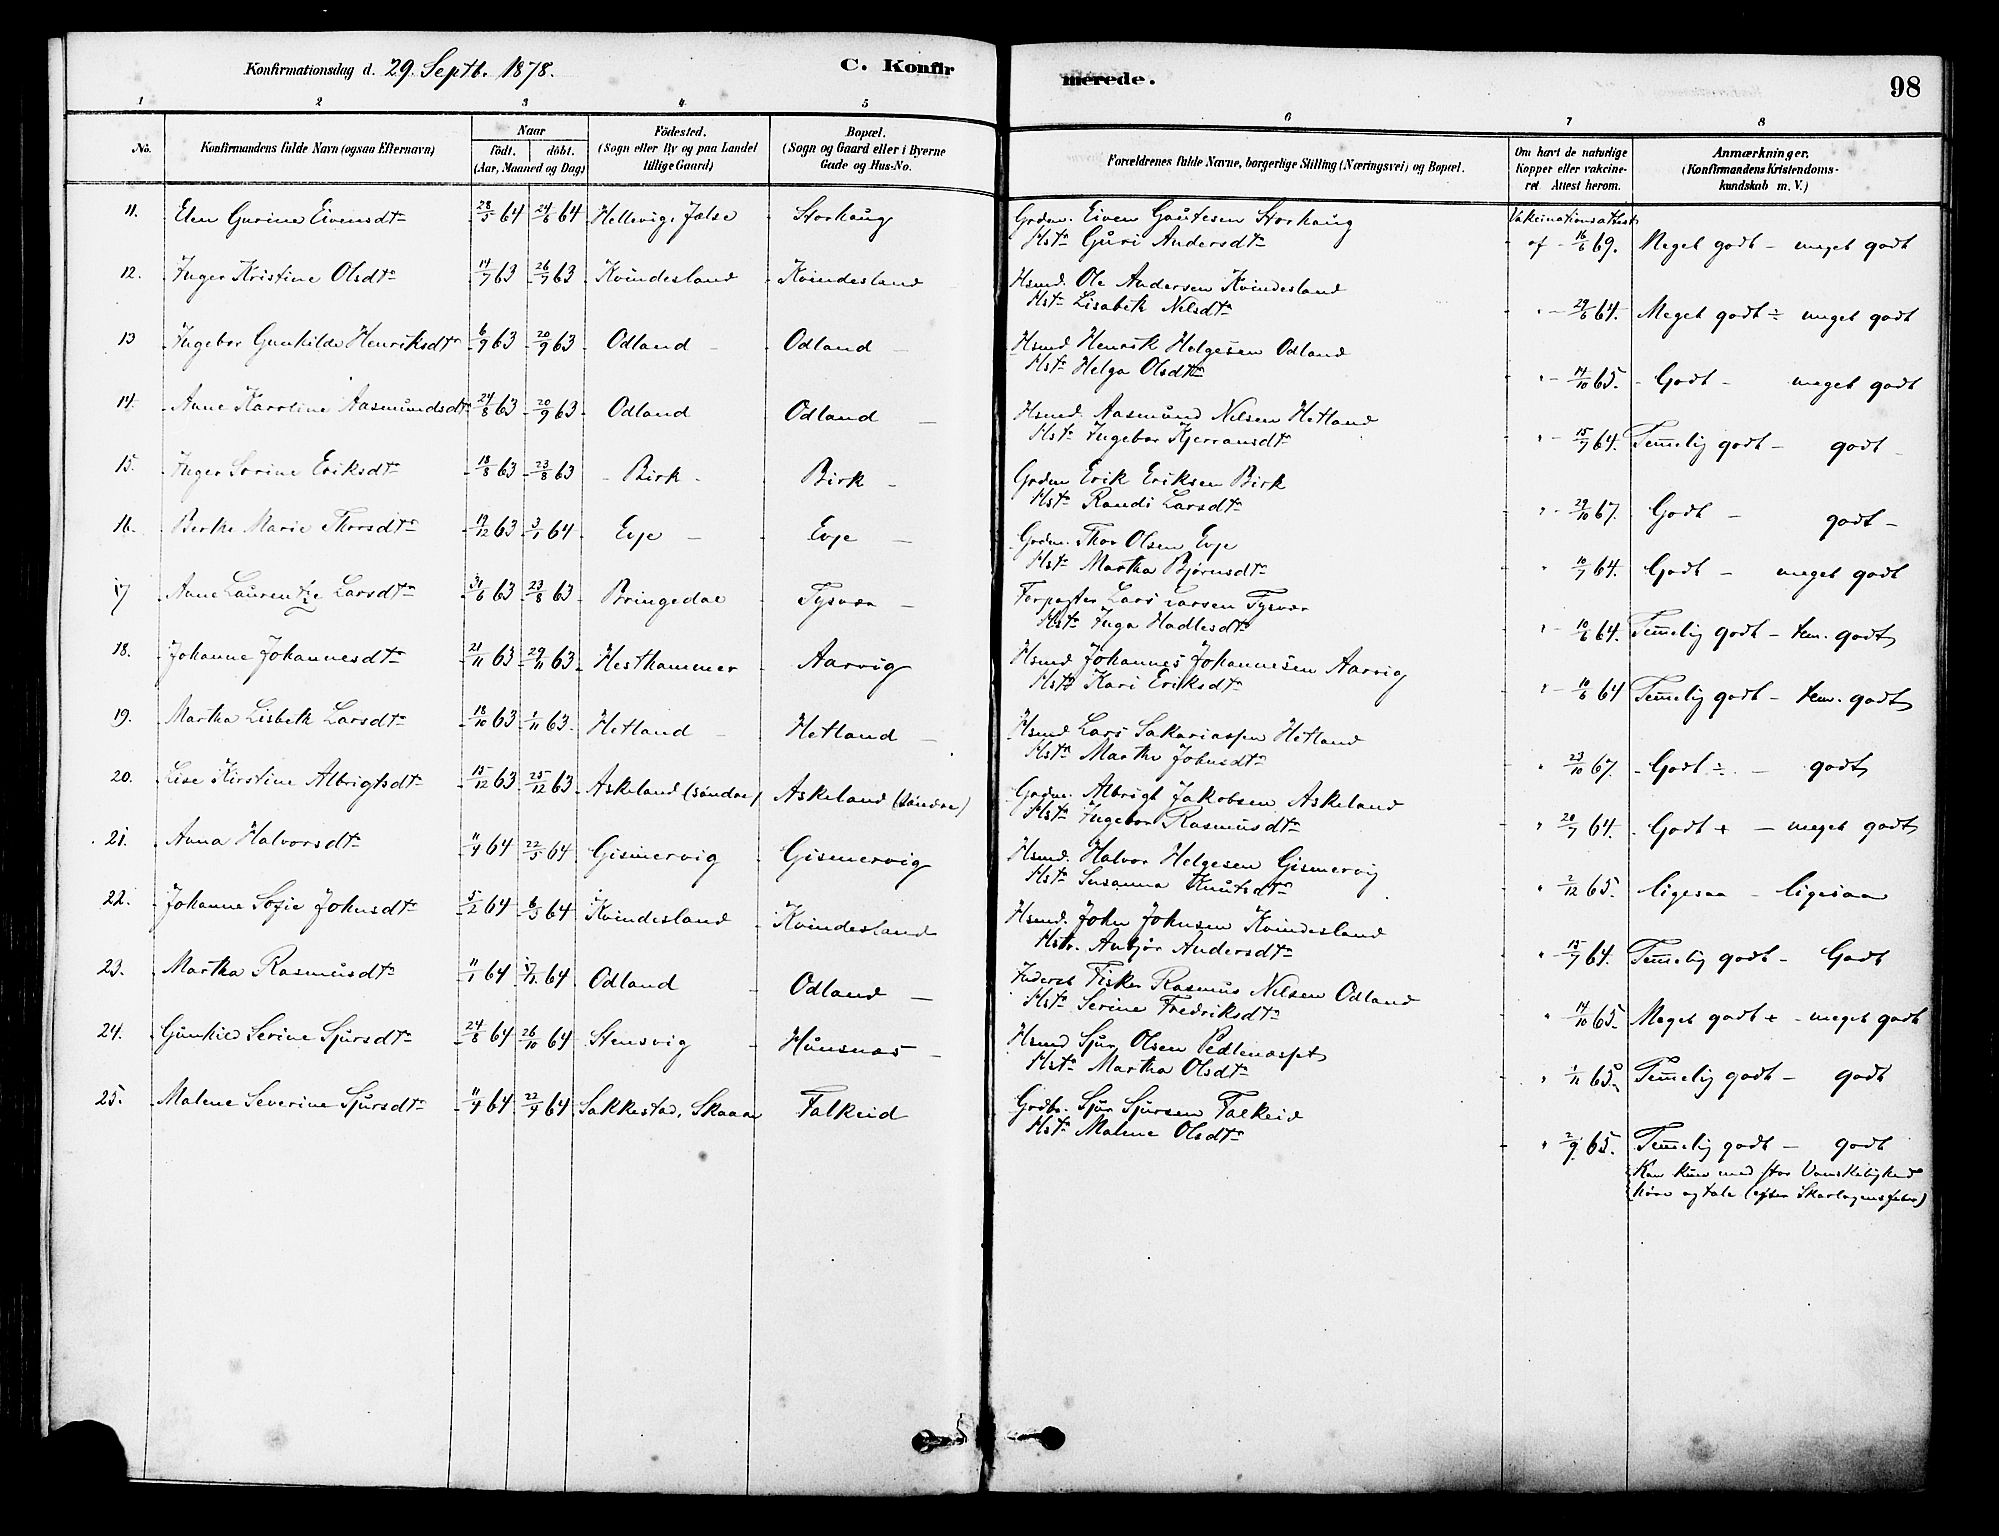 Konfirmationsdag d. 29. Septb. 1878.
C. Konfirmerede.
98
1 2 3 4 5 6 7 8
No. Konfirmandens fulde Navn (ogsaa Efternavn) Naar født. døbt. (Aar, Maaned og Dag) Fødested. (Sogn eller By og paa Landet tillige Gaard) Bopæl. (Sogn og Gaard eller i Byerne Gade og Hus-No. Forældrenes fulde Navne, borgerlige Stilling (Næringsvei) og Bopæl. Om havt de naturlige Kopper eller vakcineret. Attest herom. Anmærkninger. (Konfirmandens Kristendomskundskab m. V.)
11. Elen Gurine Eivensdtr 28/5 64 24/6 64 Hellevig, Jælse Storhaug Grdm. Eiven Gautesen Storhaug Vakcinationsattest
Hstr Guri Andersdtr af 16/6 69. Meget godt – meget godt
12. Inger Kristine Olsdtr 14/7 63 26/7 63 Kvindesland Kvindesland Hsmd. Ole Andersen Kvindesland
Hstr Lisabeth Nilsdtr " 29/6 64. Meget godt ÷ meget godt
13 Ingebor Gunhilde Henriksdtr 6/9 63 20/9 63 Odland – Odland – Hsmd Henrik Helgesen Odland
Hstr Helga Olsdtr " 14/10 65. Godt – meget godt
14. Anne Karoline Aasmundsdtr 24/8 63 20/9 63 Odland Odland – Hsmd. Aasmund Nilsen Hetland
Hstr Ingebor Kjerransdtr " 15/7 64. Temmelig godt – godt
15. Inger Sorine Eriksdtr 18/8 63 23/8 63 Birk Birk – Grdm Erik Eriksen Birk
Hstr Randi Larsdtr " 29/10 67. Godt – godt –
16. Berthe Marie Thorsdtr 19/12 63 3/1 64 Evje – Evje – Grdm. Thor Olsen Evje
Hstr Martha Bjørnsdtr " 10/7 64. Godt – meget godt
17 Anne Laurentze Larsdtr 31/6 63 23/8 63 Bringedal Tysvær – Forpagter Lars Larsen Tysvær
Hstr Inga Hadlesdtr " 10/6 64. Temmelig godt – tem. godt
18. Johanne Johannesdtr 21/11 63 29/11 63 Hesthammer Aarvig Hsmd Johannes Johannesen Aarvig
Hstr Kari Eriksdtr " 10/6 64 Temmelig godt – tem. godt
19. Martha Lisbeth Larsdtr 18/10 63 1/11 63 Hetland – Hetland – Hsmd Lars Sakariassen Hetland
Hstr Marthe Johnsdtr " 23/10 67. Godt ÷ – godt
20. Lise Kirstine Albrigtsdtr 15/12 63 25/12 63 Askeland (søndre) Askeland (søndre) Grdm. Albrigt Jakobsen Askeland
Hstr Ingebor Rasmusdtr " 20/7 64. Godt + – meget godt
21. Anna Halvorsdtr 11/4 64 22/5 64 Gismervig Gismervig Hsmd. Halvor Helgesen Gismervig
Hstr Susanna Knutsdtr " 2/12 65. ligesaa – ligesaa
22. Johanne Sofie Johnsdtr 5/2 64 6/3 64 Kvindesland Kvindesland Hsmd. John Johnsen Kvindesland
Hstr. Anbjør Andersdtr " 15/7 64. Temmelig godt – Godt
23. Martha Rasmusdtr 11/1 64 64 Odland – Odland – Inderst Fisker Rasmus Nilsen Odland
Hstr Serine Fredriksdtr " 14/10 65. Meget godt + – meget godt
24. Gunhild Serine Sjursdtr 24/8 64 26/10 64 Stensvig Husnæs – Hsmd Sjur Olsen
Hstr Martha Olsdtr " 1/11 65. Temmelig godt – godt
25. Malene Severine Sjursdtr 11/4 64 22/4 64 Sakkestad, Skaare Falkeid Grdbr. Sjur Sjursen Falkeid
Hstr Malene Olsdtr " 2/9 65. Temmelig godt – godt
Kan kun med stor Vanskelighed
høre og tale (efter Skarlagensfeber)